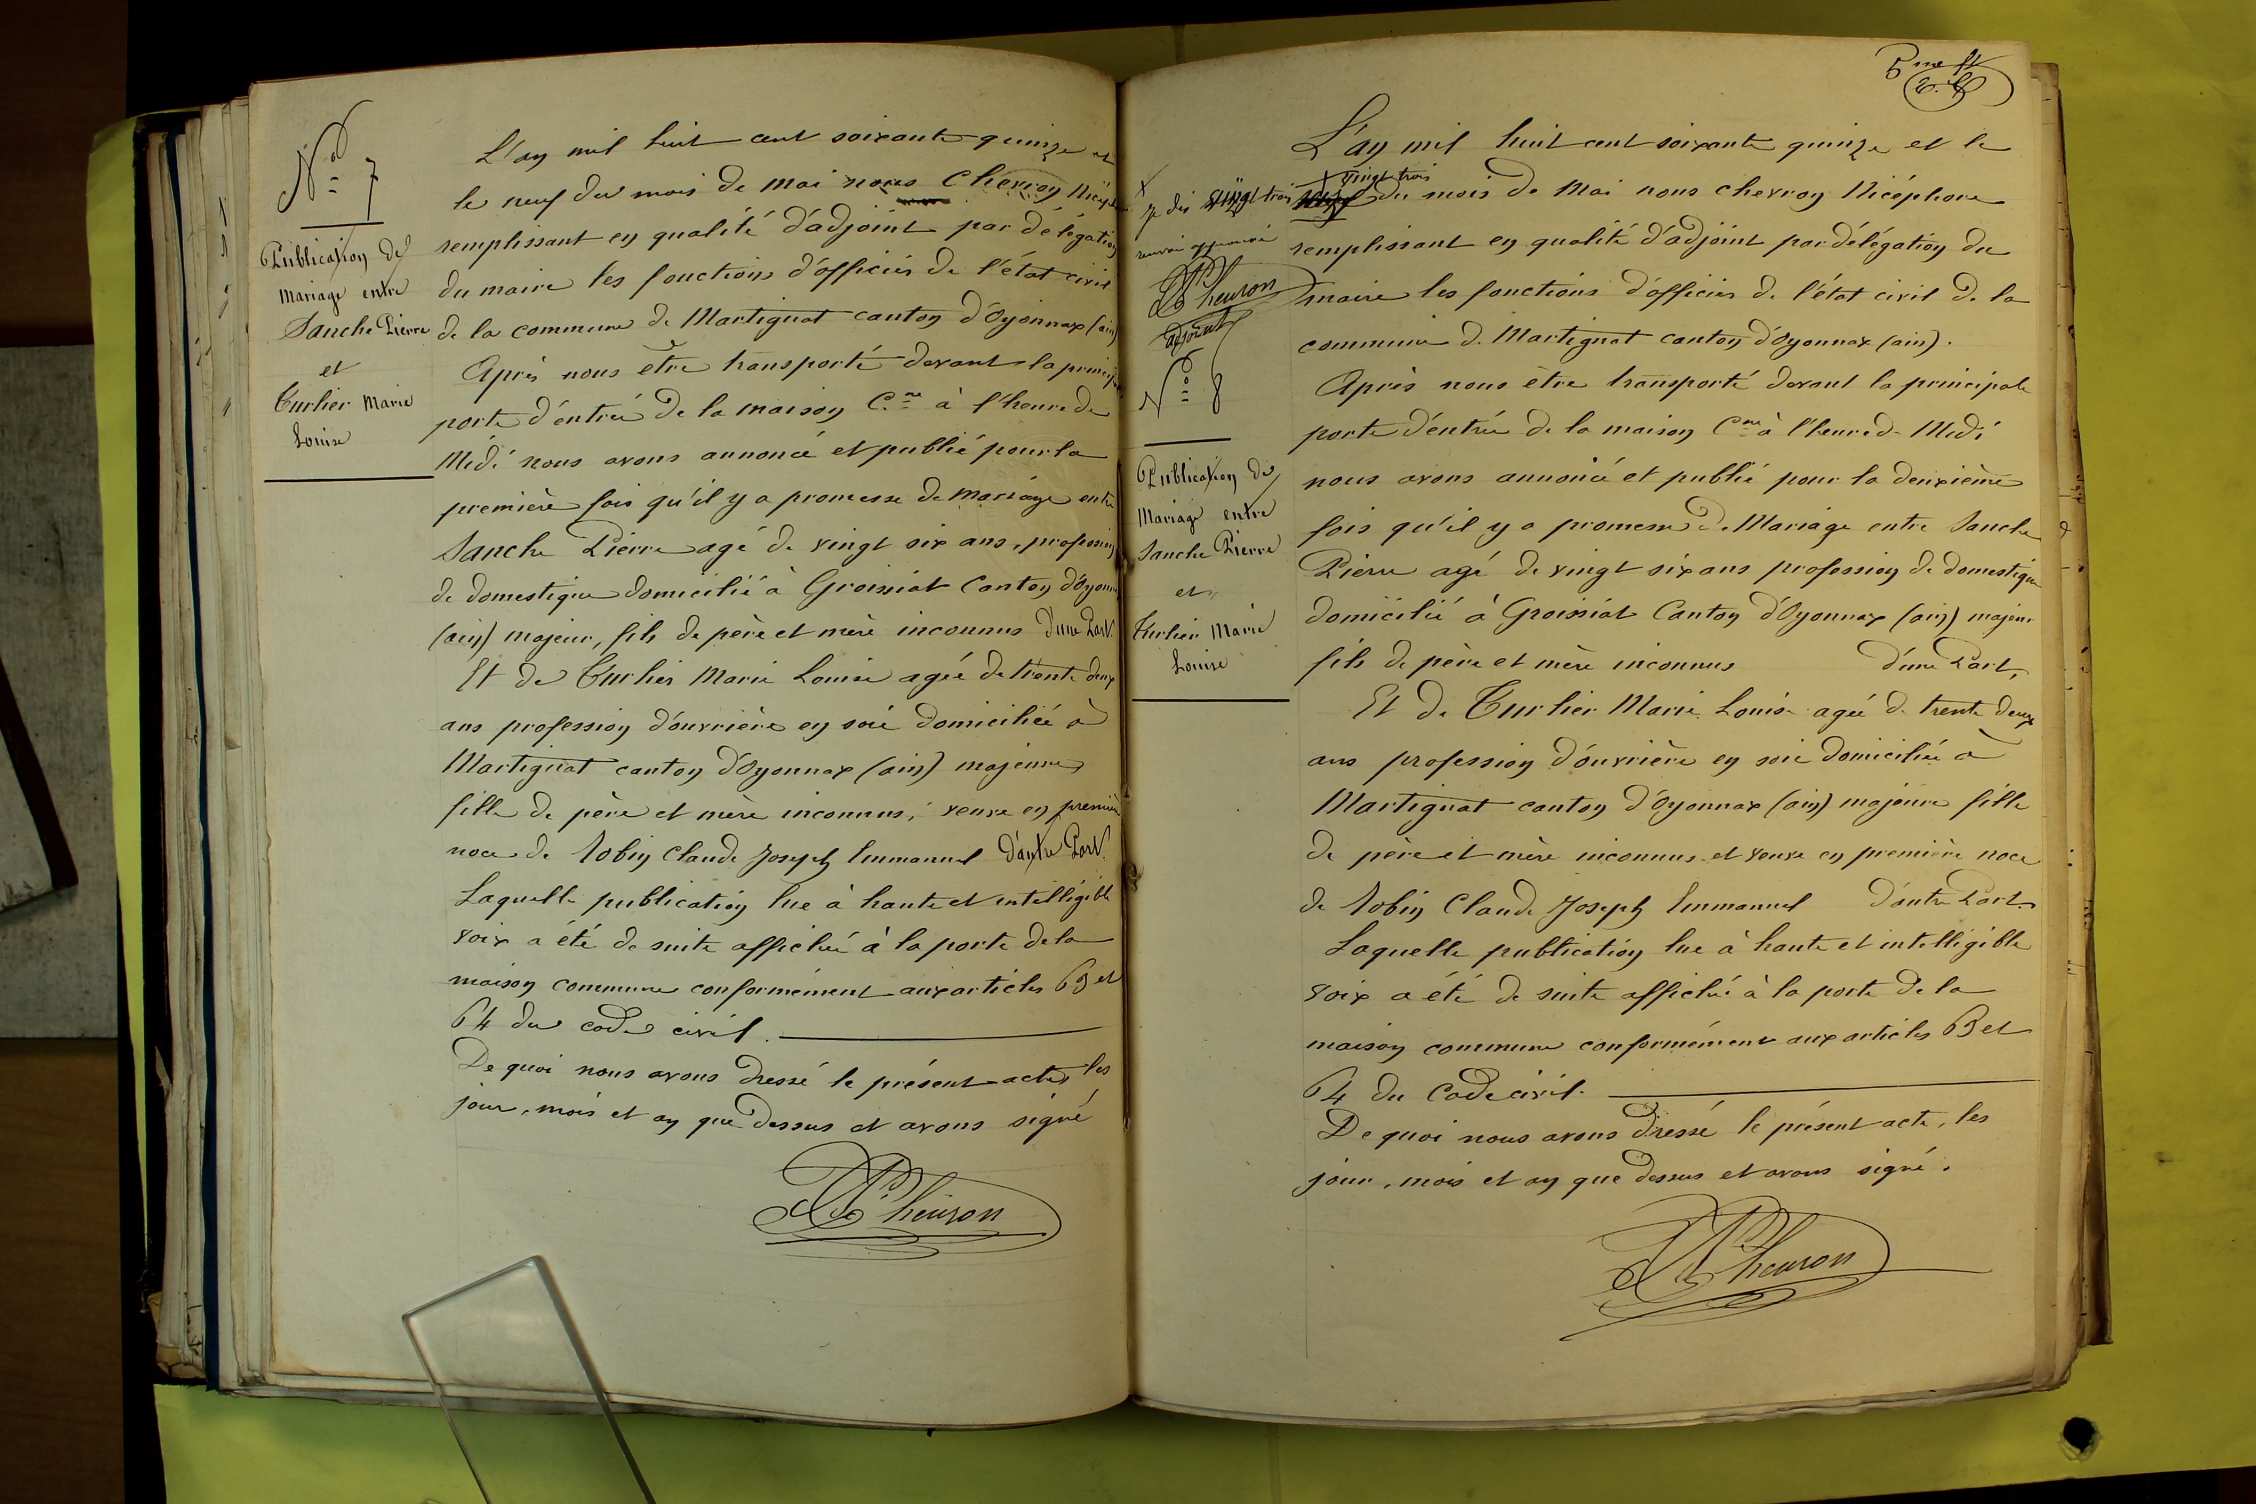 N° 7
Publication de
Mariage entre
Sanche Pierre
et
Turlier Marie
Louise
L'an mil huit cent soixante quinze et
le neuf du mois de Mai nous Chevron Nicéphore
remplissant en qualité d'adjoint par délégation
du maire les fonctions d'officier de l'état civil
de la commune de Martignat canton d'Oyonnax (ain)
Après nous être transporté devant la principale
porte d'entrée de la maison C.ne à l'heure de
Midi nous avons annoncé et publié pour la
première fois qu'il y a promesse de mariage entre
Sanche Pierre agé de vingt six ans, profession
de domestique domicilié à Groissiat Canton d'Oyonnax
(ain) majeur, fils de père et mère inconnus d'une Part.
Et de Turlier Marie Louise agée de trente deux
ans profession d'ouvrière en soie domiciliée à
Martignat canton d'Oyonnax (ain) majeure,
fille de père et mère inconnus, veuve en première
noce de Robin Claude Joseph Emmanuel d'autre Part.
Laquelle publication lue à haute et intelligible
voix a été de suite affichée à la porte de la
maison commune conformément aux articles 63 et
64 du code civil.
De quoi nous avons dressé le présent acte, les
jour, mois et an que dessus et avons signé
N Chevron
5me ft
X
je dis vingt trois
renvoi approuvé
N Chevron
adjoint
N° 8
Publication de
Mariage entre
Sanche Pierre
et
Turlier Marie
Louise
L'an mil huit cent soixante quinze et le
X vingt trois
du mois de Mai nous Chevron Nicéphore
remplissant en qualité d'adjoint par délégation du
maire les fonctions d'officier de l'état civil de la
commune de Martignat canton d'Oyonnax (ain).
Après nous être transporté devant la principale
porte d'entrée de la maison C.ne à l'heure de Midi
nous avons annoncé et publié pour la deuxième
fois qu'il y a promesse de Mariage entre Sanche
Pierre agé de vingt six ans profession de domestique
domicilié à Groissiat Canton d'Oyonnax (ain) majeur
fils de père et mère inconnus d'une Part,
Et de Turlier Marie Louise agée de trente deux
ans profession d'ouvrière en soie domiciliée à
Martignat canton d'Oyonnax (ain) majeure fille
de père et mère inconnus et veuve en première noce
de Robin Claude Joseph Emmanuel d'autre Part.
Laquelle publication lue à haute et intelligible
voix a été de suite affichée à la porte de la
maison commune conformément aux articles 63 et
64 du Code civil.
De quoi nous avons dressé le présent acte, les
jour, mois et an que dessus et avons signé.
N Chevron